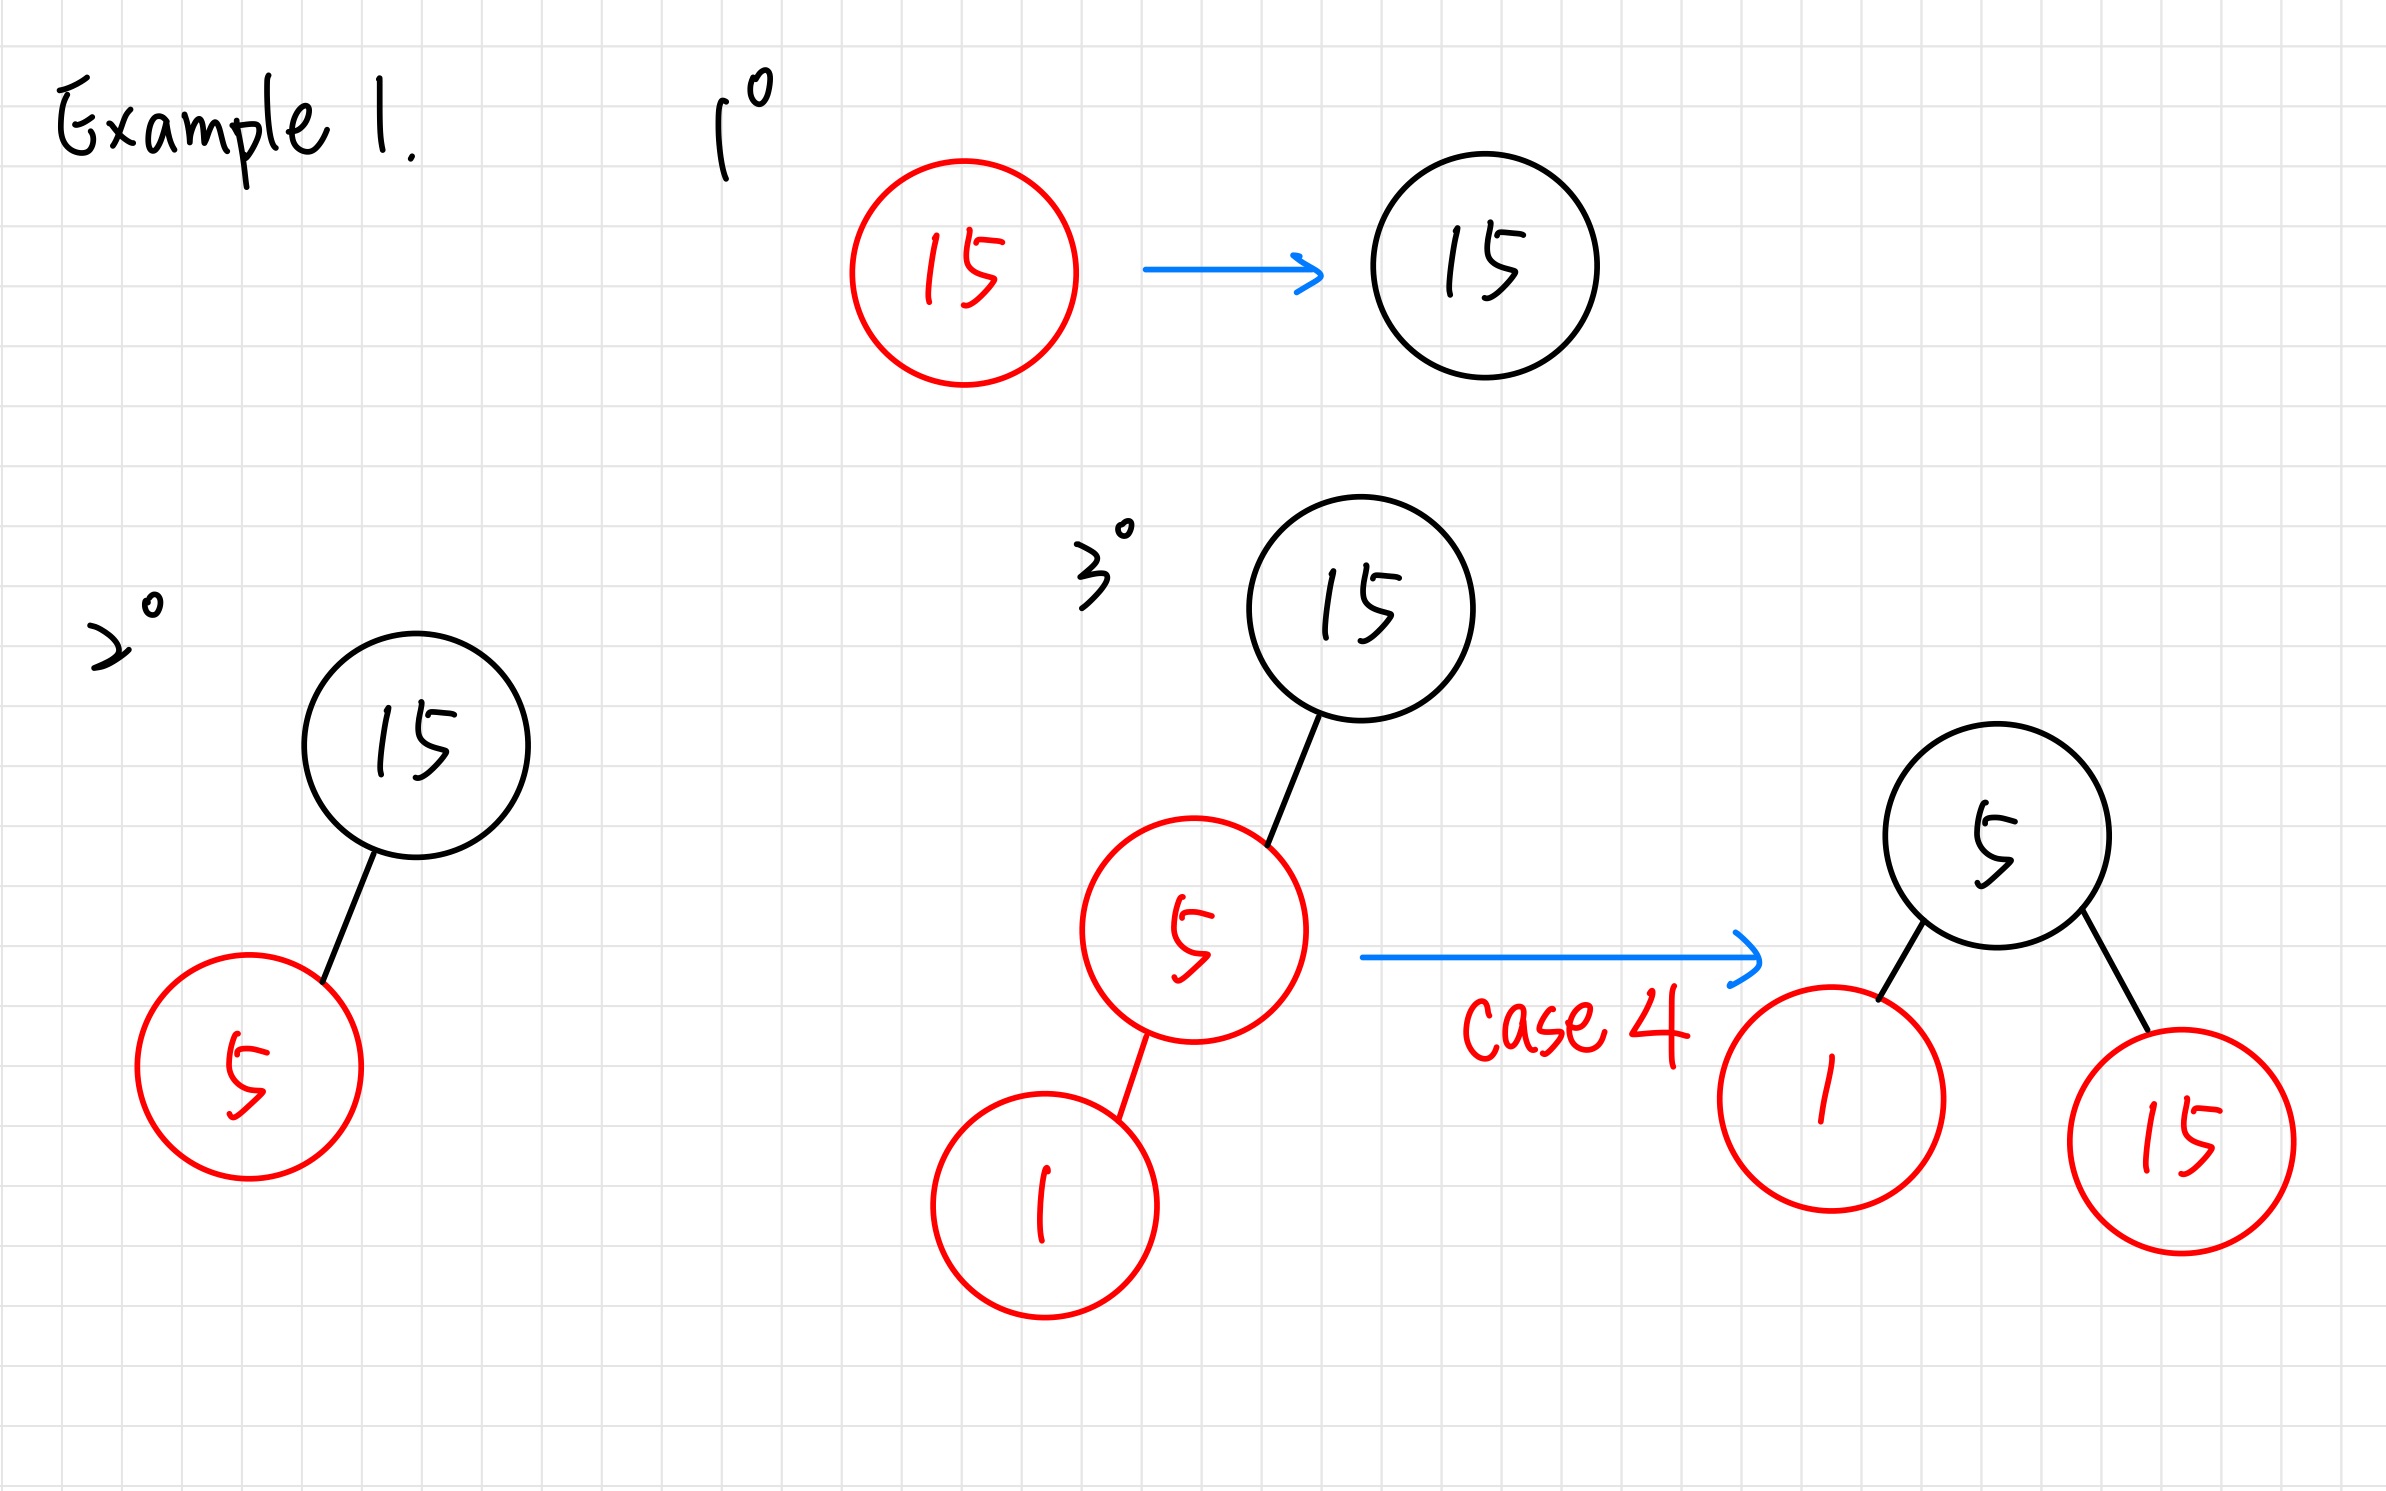 Example 1.
1°
15
15
2°
15
5
3°
15
5
1
case 4
5
1
15